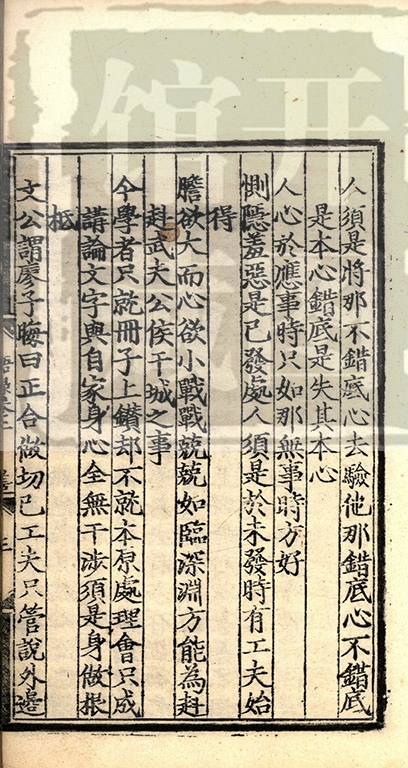 人須是將那不錯底心去驗他那錯底心不錯底
是本心錯底是失其本心
人心於應事時只如那無事時方好
惻隱羞惡是已發處人須是於未發時有工夫始
得
膽欲大而心欲小戰戰兢兢如臨深淵方能為赳
赳武夫公侯干城之事
今學者只就冊子上鑽却不就本原處理會只成
講論文字與自家身心全無干涉須是身做根
柢
文公謂廖子晦曰正合做切己工夫只管說外邊